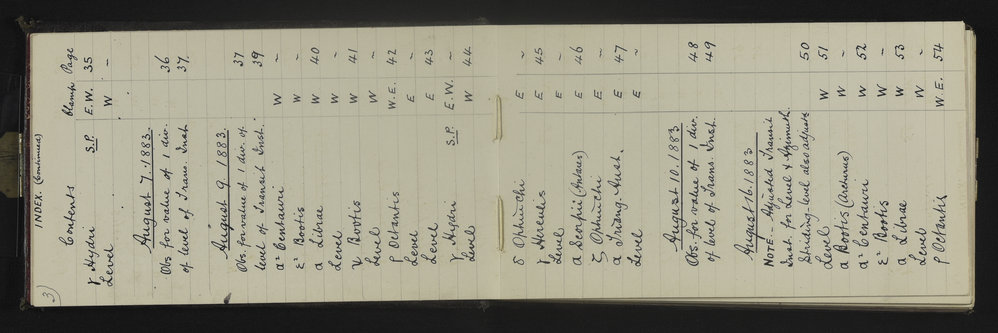 3)
INDEX. (Continued)
Contents Clamp Page
γ Hydri S.P. E.W. 35
Level W ~
August 7. 1883
Obs. for value of 1 div. 36
of level of Trans. Inst 37.
August 9. 1883.
Obs. for value of 1 div. of 37
level of Transit Inst. 39
α² Centauri W ~
ε² Bootis W ~
α Librae W 40
Level W ~
Bootis W 41
Level W ~
ρ Octantis W.E. 42
Level E ~
Level E 43
γ Hydri S.P. E.W. ~
Level W 44
δ Ophiuchi E ~
γ Herculis E 45
Level E ~
α Scorpii (Antares) E 46
ζ Ophiuchi E ~
α Triang. Aust. E 47
Level E ~
August 10. 1883
Obs. for value of 1 div. 48
of level of Trans. Inst. 49
August 16. 1883
NOTE. Adjusted Transit
Inst. for Level & Azimuth
Striding-level also adjusted 50
Level W 51
α Bootis (Arcturus) W ~
α² Centauri W 52
ε² Bootis W ~
α Librae W 53
Level W ~
ρ Octantis W.E. 54